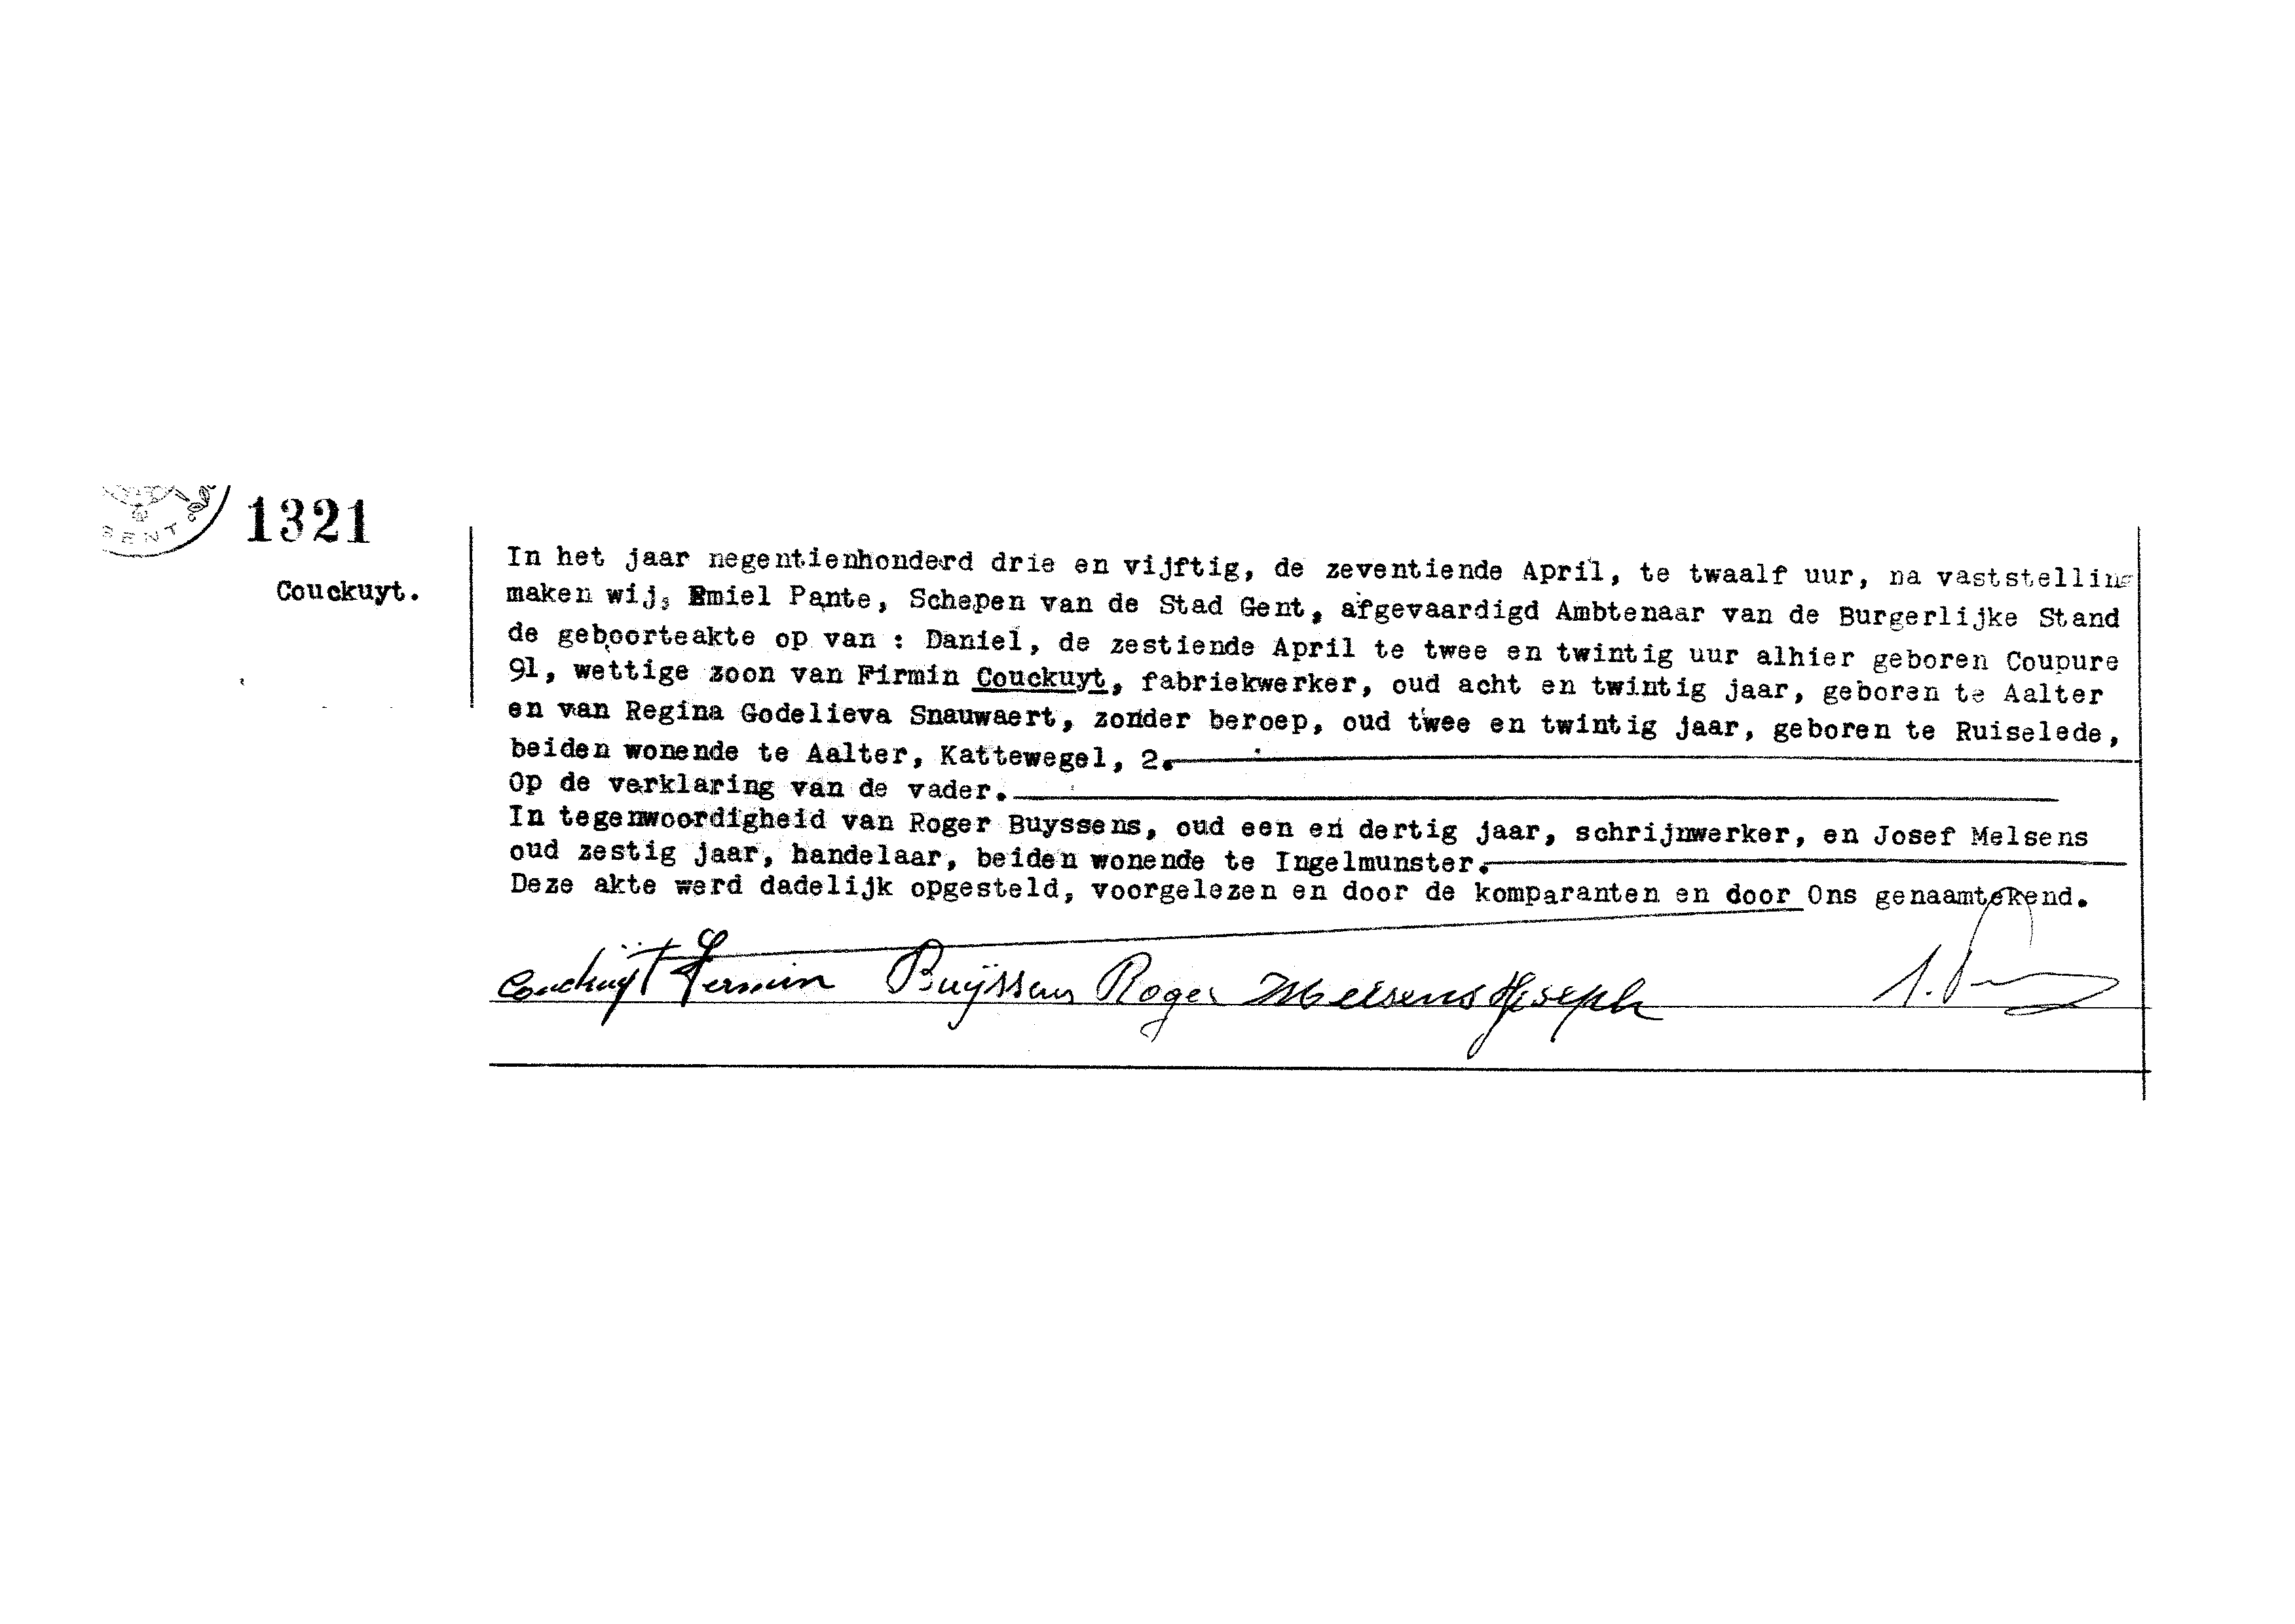 GENT
1321
Couckuyt.
In het jaar negentienhonderd drie en vijftig, de zeventiende April, te twaalf uur, na vaststelling
maken wij, Emiel Pante, Schepen van de Stad Gent, afgevaardigd Ambtenaar van de Burgerlijke Stand
de geboorteakte op van : Daniel, de zestiende April te twee en twintig uur alhier geboren Coupure
91, wettige zoon van Firmin Couckuyt, fabriekwerker, oud acht en twintig jaar, geboren te Aalter
en van Regina Godelieva Snauwaert, zonder beroep, oud twee en twintig jaar, geboren te Ruiselede,
beiden wonende te Aalter, Kattewegel, 2.
Op de verklaring van de vader.
In tegenwoordigheid van Roger Buyssens, oud een en dertig jaar, schrijnwerker, en Josef Melsens
oud zestig jaar, handelaar, beiden wonende te Ingelmunster.
Deze akte werd dadelijk opgesteld, voorgelezen en door de komparanten en door Ons genaamtekend.
Couckuÿt Fermin Buÿssens Roger Melsens Joseph